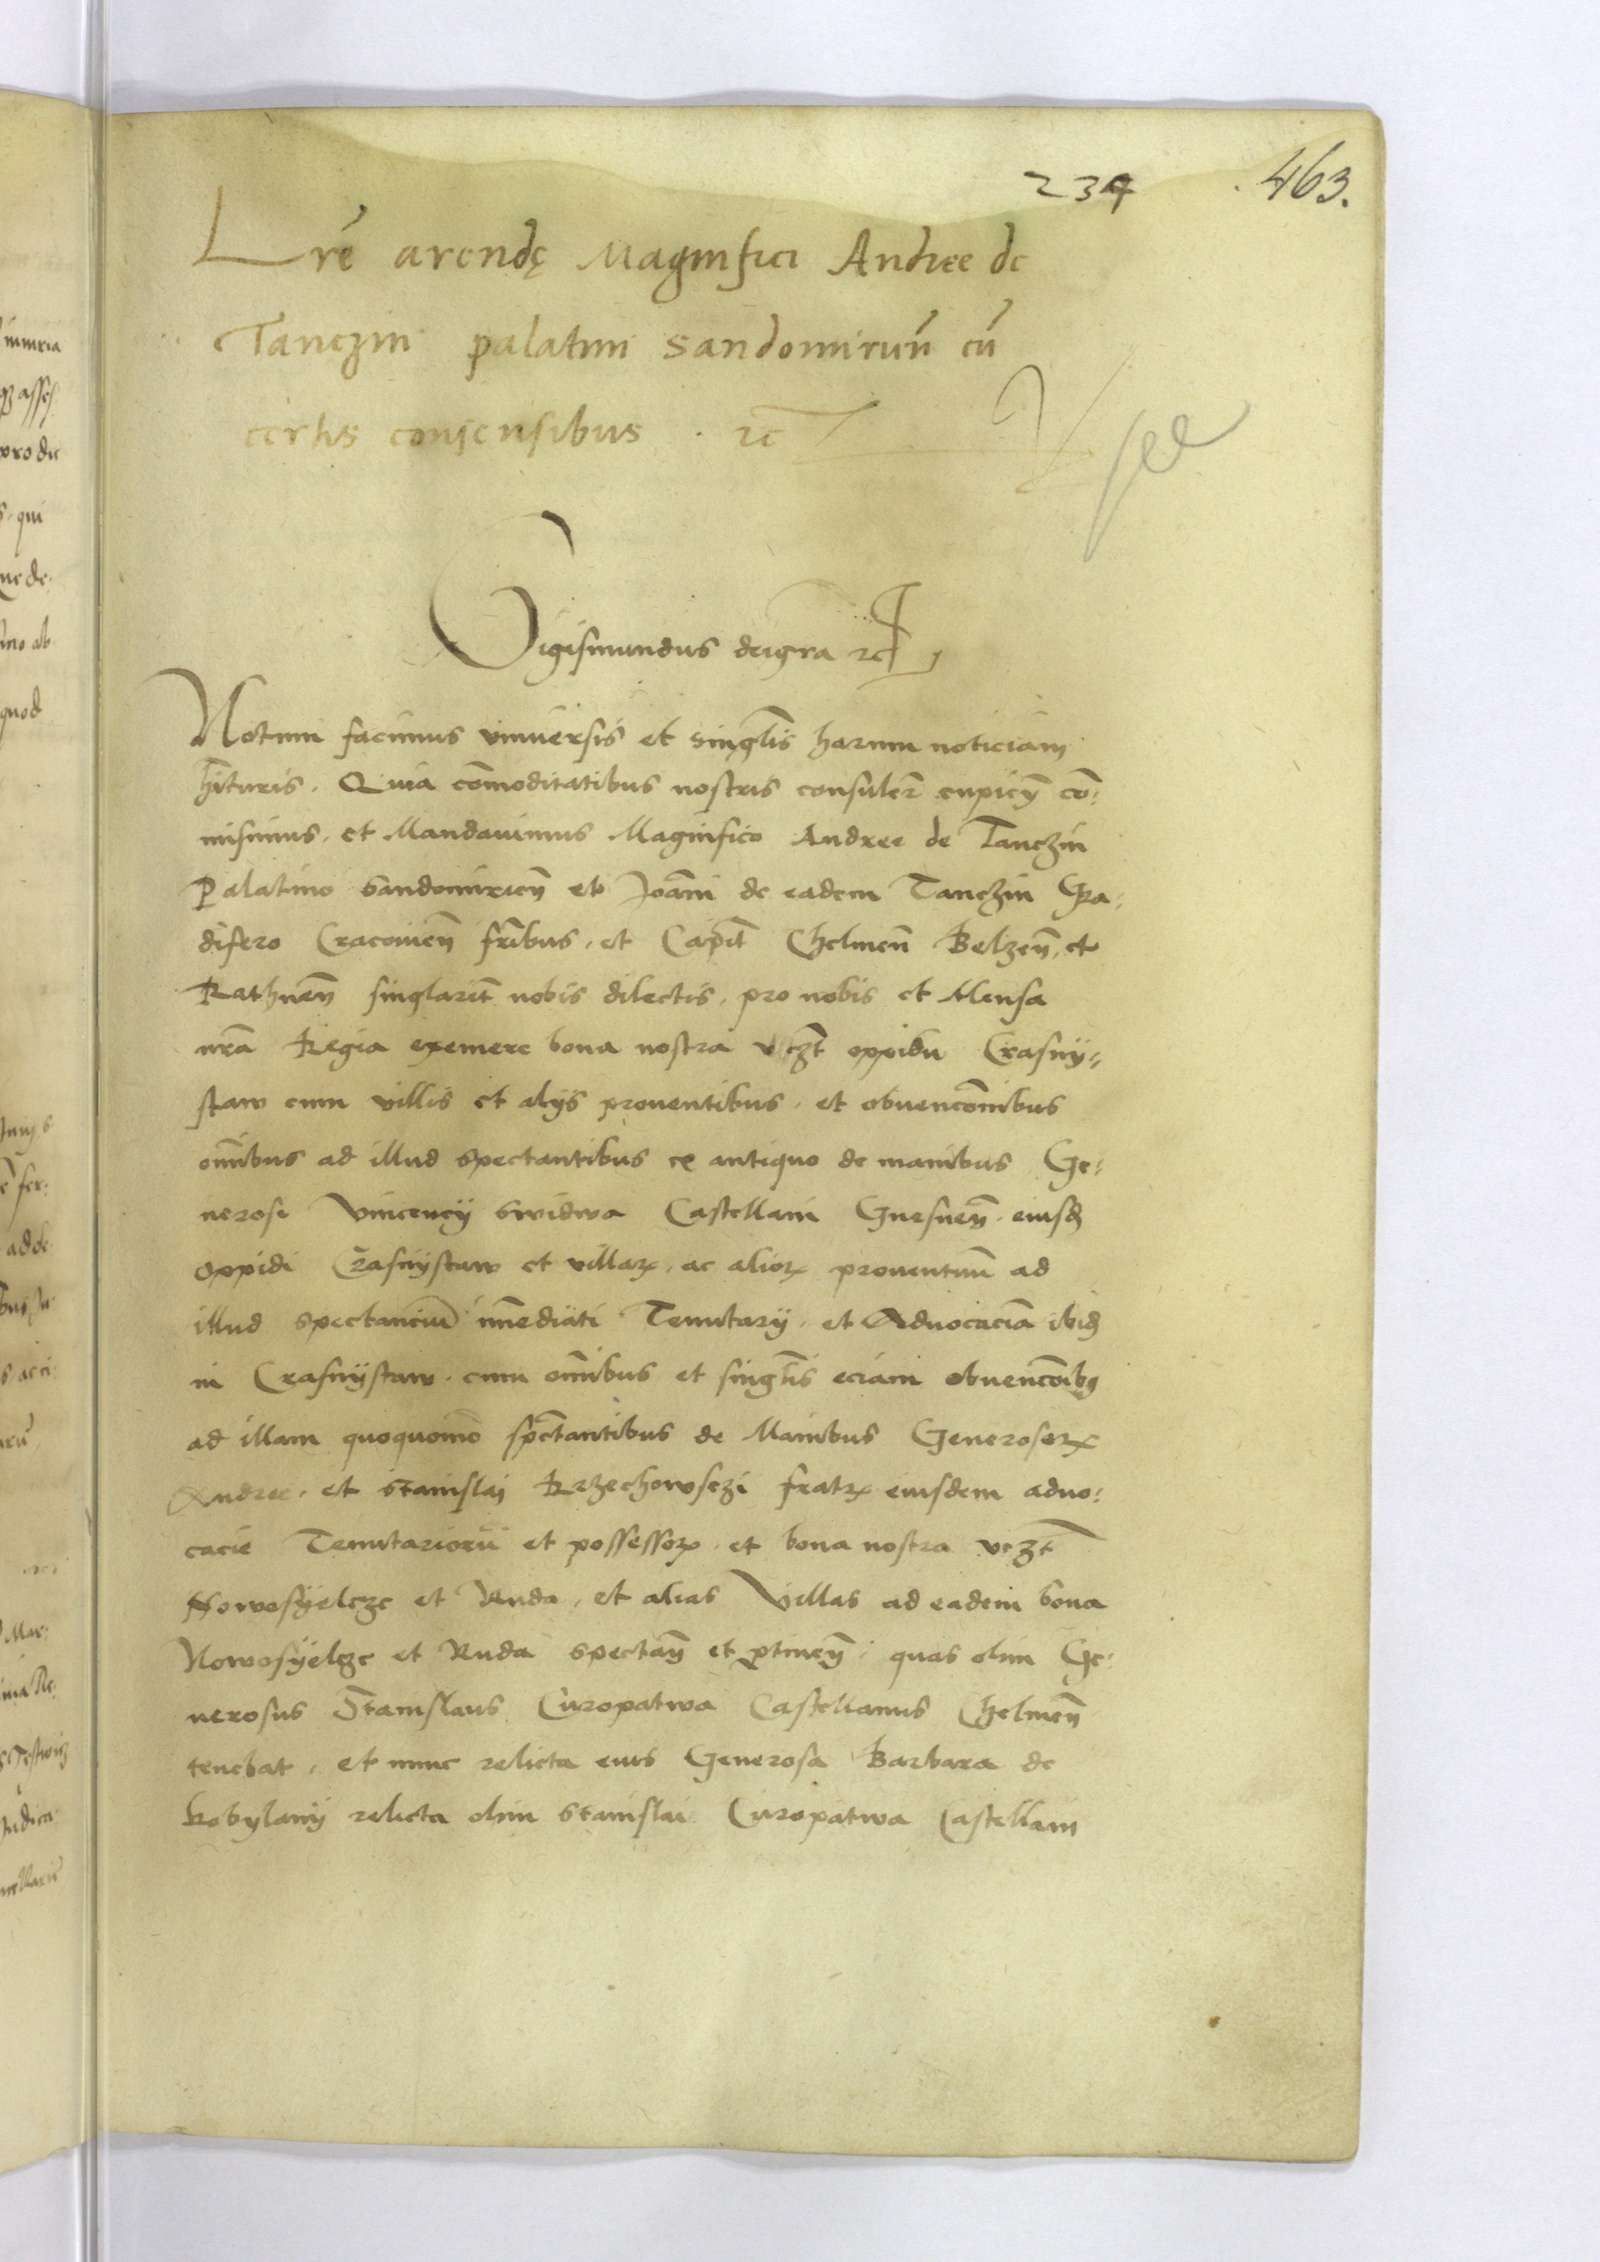 234 .463.
Lrē arendę Magnifici Andree de
Tanczin palatini Sandomirieñ cū
certis consensibus . zc
Sigismundus dei gra zc
Notum facimus vniuersis et singlis harum noticiam
hituris. Quia cōmoditatibus nostris consulere cupieñ cō=
misimus. et Mandauimus Magnifico Andree de Tanczin
Palatino Sandomirieñ et Joāni de eadem Tanczin Gla=
difero Cracovieñ frībus. et Capit Chelmeñ Belzeñ. et
Rathneñ singlarit nobis dilectis. pro nobis et Mensa
nrā Regia exemere bona nostra vczt oppidū Crasny=
staw cum villis et alijs prouentibus. et obuencōnibus
omībus ad illud spectantibus ex antiquo de manibus Ge=
nerosi Vincencij Swidwa Castellani Gnesneñ. eiusd
oppidi Crasnystaw et villar. ac alior prouentuū ad
illud spectanciū īmediati Tenutarij. et Aduocaciā ibid
in Crasnystaw. cum omībus et singlis eciam obuencōibus
ad illam quoquomō spectantibus de Manibus Generosor
Andree. et Stanislaj Krzechowsczi fratr eiusdem aduo=
cacie Tenutariorū et possessor. et bona nostra vczt
Nowosyelcze et Ruda. et alias Villas ad eadem bona
Nowosyelcze et Ruda spectañ et ptineñ. quas olim Ge=
nerosus Stanislaus Curopatwa Castellanus Chelmeñ
tenebat. et nunc relicta eius Generosa Barbara de
Kobylany relicta olim Stanislai Curopatwa Castellani